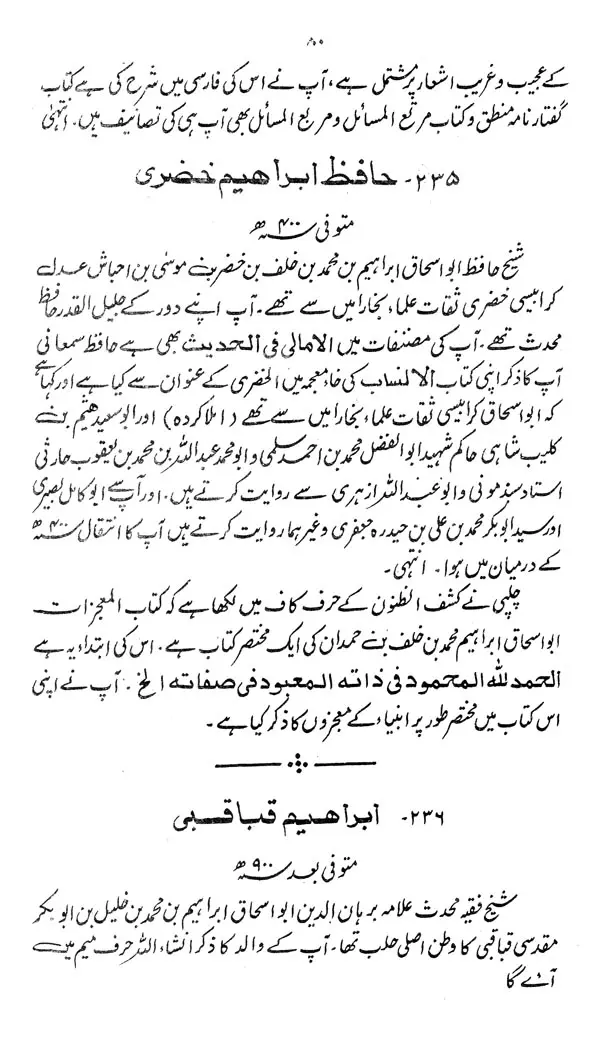 کے عجیب و غریب اشعار پر مشتمل ہے، آپ نے اس کی فارسی میں شرح کی ہے کتاب
گفتار نامہ منطق و کتاب مرتع المسائل و مربع المسائل بھی آپ ہی کی تصانیف ہیں. انتہیٰ
۲۳۵- حافظ ابراھیم خضری
متوفی ۴۰۰ھ
شیخ حافظ ابو اسحاق ابراہیم بن محمد بن خلف بن خضر بن موسیٰ بن احباش عدل
کرابیسی خضری ثقات علماء بخارا میں سے تھے۔ آپ اپنے دور کے جلیل القدر حافظ
محدث تھے۔ آپ کی مصنفات میں الامالی فی الحدیث بھی ہے حافظ سمعانی
آپ کا ذکر اپنی کتاب الانساب کی خاء معجمہ میں الخضری کے عنوان سے کیا ہے اور کہا ہے
کہ ابو اسحاق کرابیسی ثقات علماء بخارا میں سے تھے (املا کردہ) اور ابو سعید ھثیم بن
کلیب شاہی حاکم شہید ابو الفضل محمد بن احمد سلمی و ابو محمد عبد اللہ بن محمد بن یعقوب حارثی
استاد سبذمونی و ابو عبد اللہ ازہری سے روایت کرتے ہیں. اور آپ سے ابو کامل بصیری
اور سید ابو بکر محمد بن علی بن حیدرہ جعفری وغیرہما روایت کرتے ہیں آپ کا انتقال ۴۰۰ھ
کے درمیان میں ہوا۔ انتہی۔
چلپی نے کشف الظنون کے حرف کاف میں لکھا ہے کہ کتاب المعجزات
ابو اسحاق ابراہیم محمد بن خلف بن حمدان کی ایک مختصر کتاب ہے. اس کی ابتداء یہ ہے
الحمد للہ المحمود فی ذاتہ المعبود فی صفاتہ الخ. آپ نے اپنی
اس کتاب میں مختصر طور پر انبیاء کے معجزوں کا ذکر کیا ہے۔
۲۳۶- ابراھیم قباقبی
متوفی بعد ۹۰۰ھ
شیخ فقیہ محدث علامہ برہان الدین ابو اسحاق ابراہیم بن محمد بن خلیل بن ابوبکر
مقدسی قباقبی کا وطن اصلی حلب تھا۔ آپ کے والد کا ذکر انشاء اللہ حرف میم میں
آئے گا